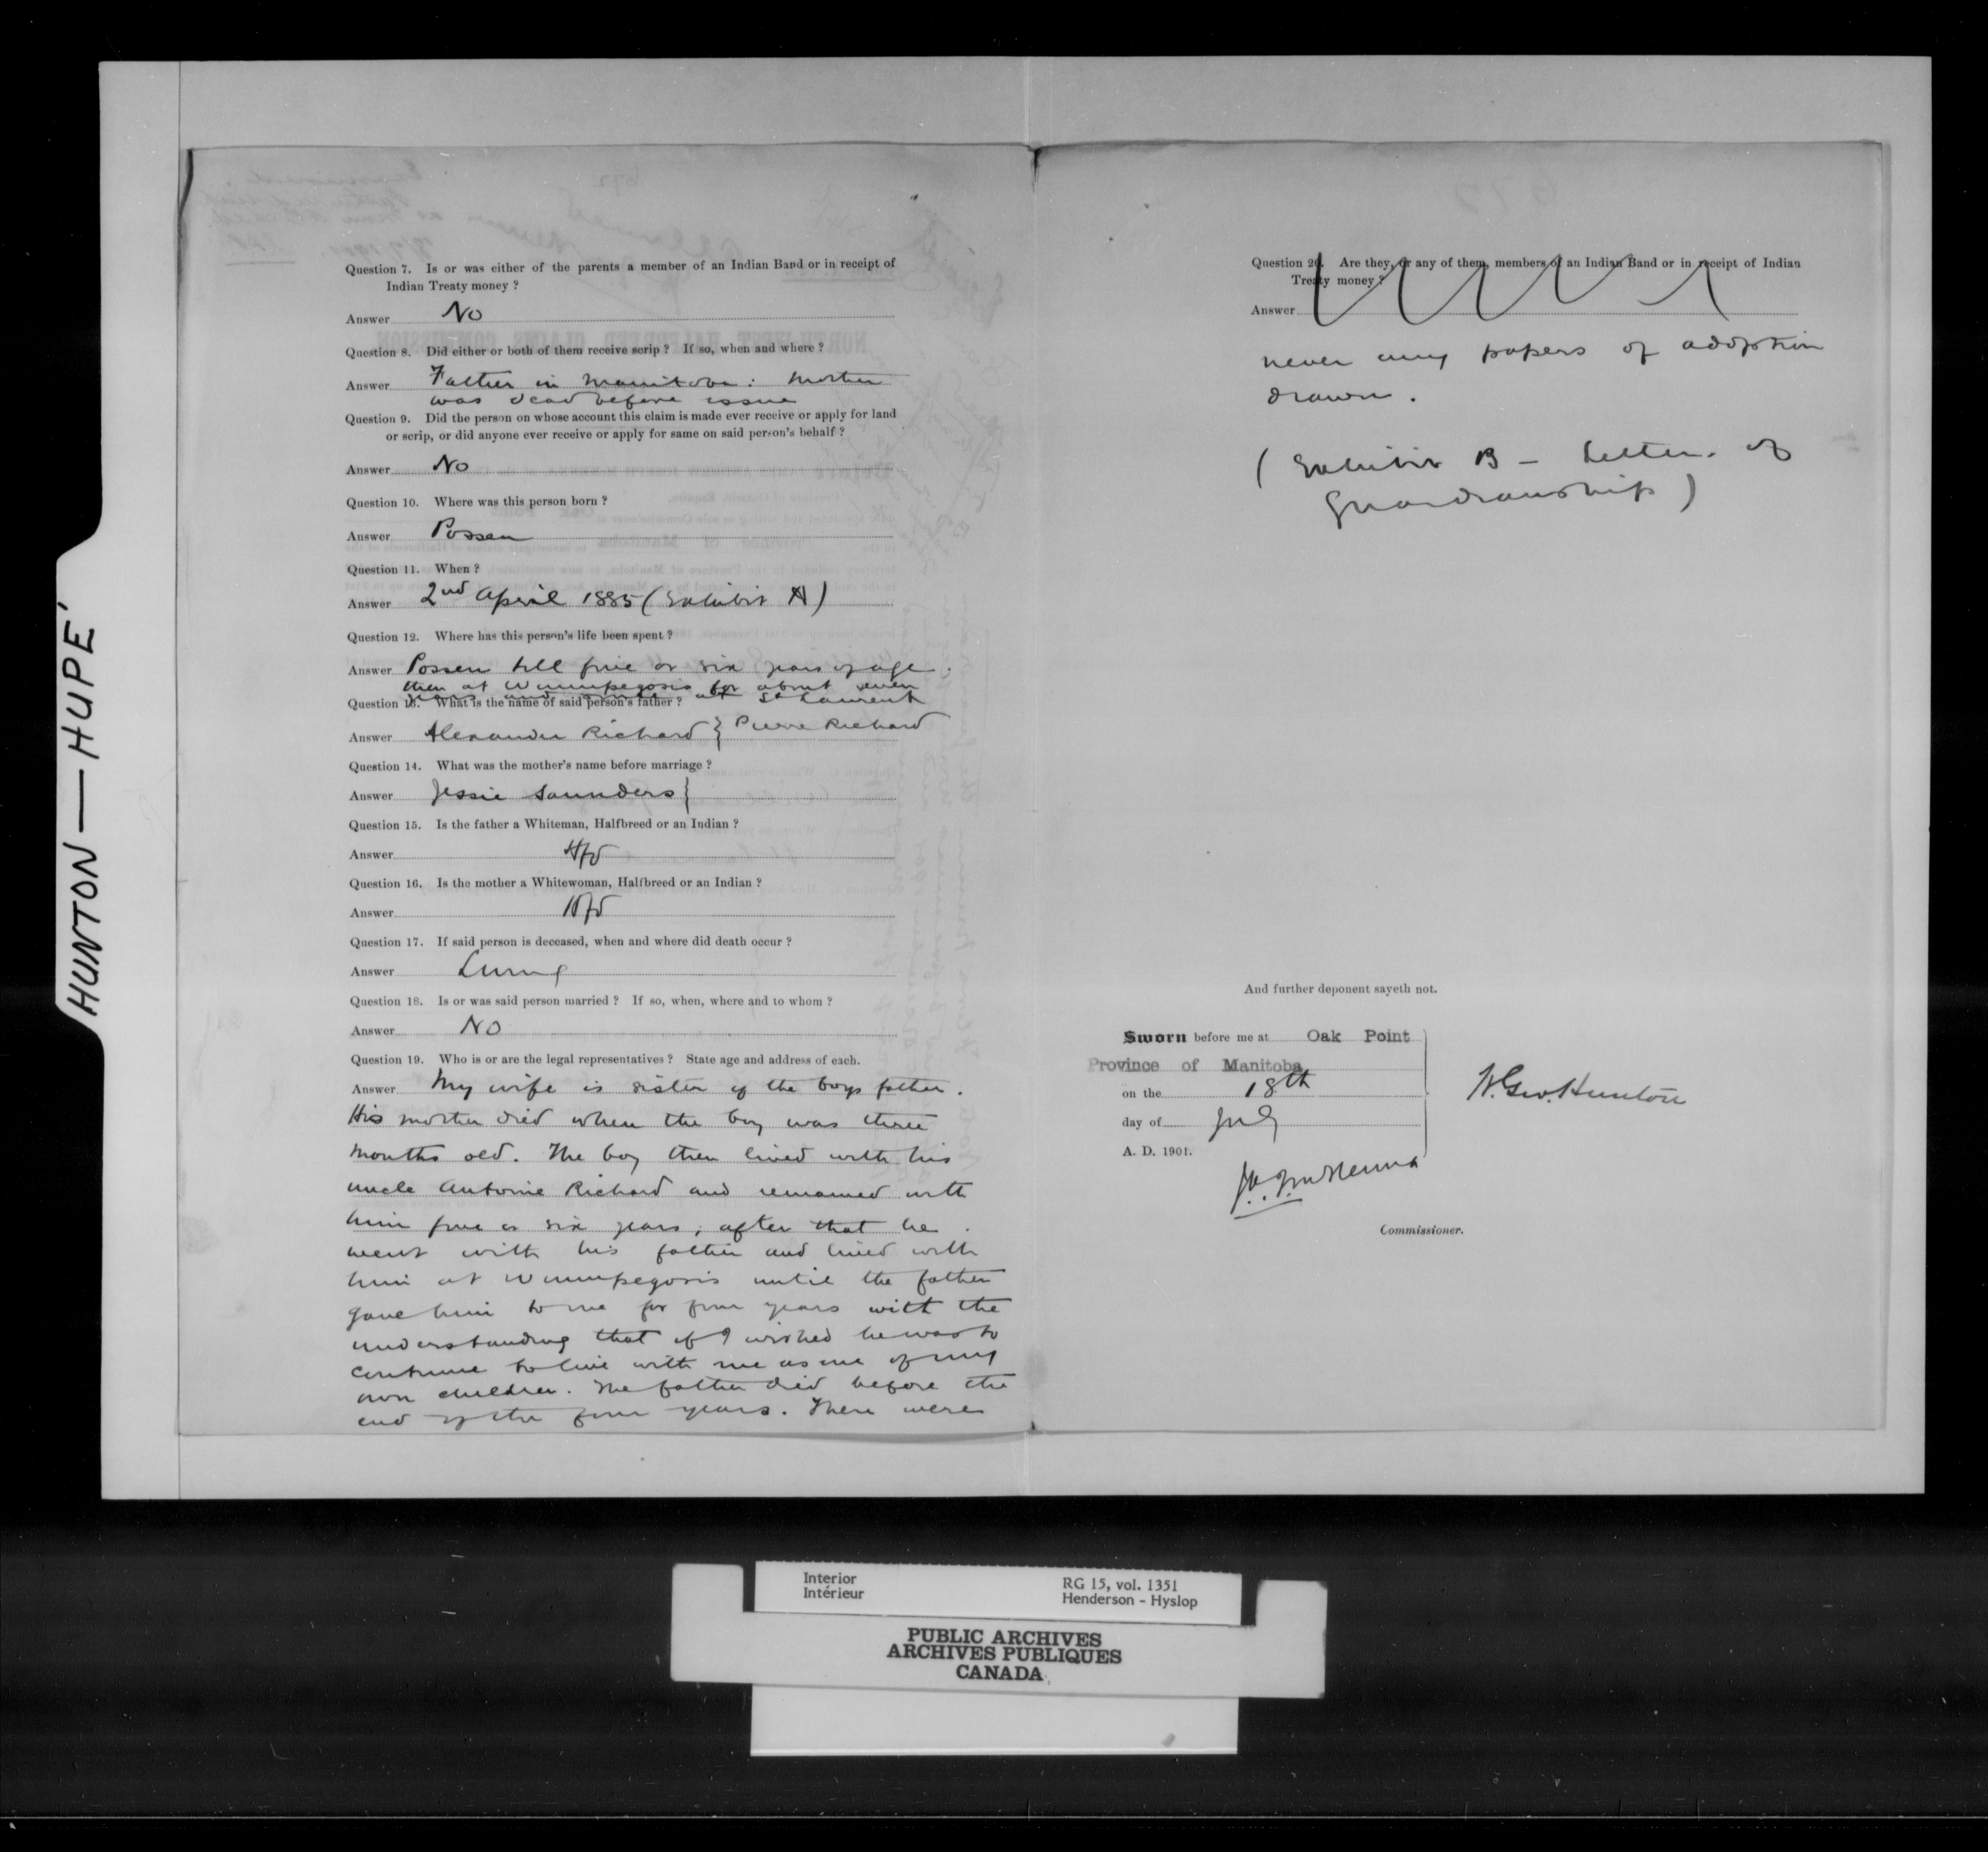 HUNTON — HUPÉ
Question 7. Is or was either of the parents a member of an Indian Band or in receipt of
Indian Treaty money ?
Answer No
Question 8. Did either or both of them receive scrip ? If so, when and where ?
Answer Father in Manitoba: Mother
was dead before issue
Question 9. Did the person on whose account this claim is made ever receive or apply for land
or scrip, or did anyone ever receive or apply for same on said person's behalf ?
Answer No
Question 10. Where was this person born ?
Answer Possen
Question 11. When ?
Answer 2nd April 1885 (Exhibit A)
Question 12. Where has this person's life been spent ?
Answer Possen till five or six years of age.
then at Winnipegosis for about seven
years and since at St Laurent
Question 13. What is the name of said person's father ?
Answer Alexander Richard } Pierre Richard
Question 14. What was the mother's name before marriage ?
Answer Jessie Saunders }
Question 15. Is the father a Whiteman, Halfbreed or an Indian ?
Answer Hfd
Question 16. Is the mother a Whitewoman, Halfbreed or an Indian ?
Answer Hfd
Question 17. If said person is deceased, when and where did death occur ?
Answer Living
Question 18. Is or was said person married ? If so, when, where and to whom ?
Answer No
Question 19. Who is or are the legal representatives ? State age and address of each.
Answer My wife is sister of the boys father.
His mother died when the boy was three
months old. The boy then lived with his
uncle Antoine Richard and remained with
him five or six years; after that he
went with his father and lived with
him at Winnipegosis until the father
gave him to me for four years with the
understanding that if I wished he was to
continue to live with me as one of my
own children. The father died before the
end of the four years. There were
Question 20. Are they, or any of them, members of an Indian Band or in receipt of Indian
Treaty money ?
Answer
never any papers of adoption
drawn.
(Exhibit B – Letter of
Guardianship)
And further deponent sayeth not.
Sworn before me at Oak Point
Province of Manitoba
on the 18th
day of July
A. D. 1901.
W. Geo. Hunton
Commissioner.
Interior
Intérieur
RG 15, vol. 1351
Henderson - Hyslop
PUBLIC ARCHIVES
ARCHIVES PUBLIQUES
CANADA